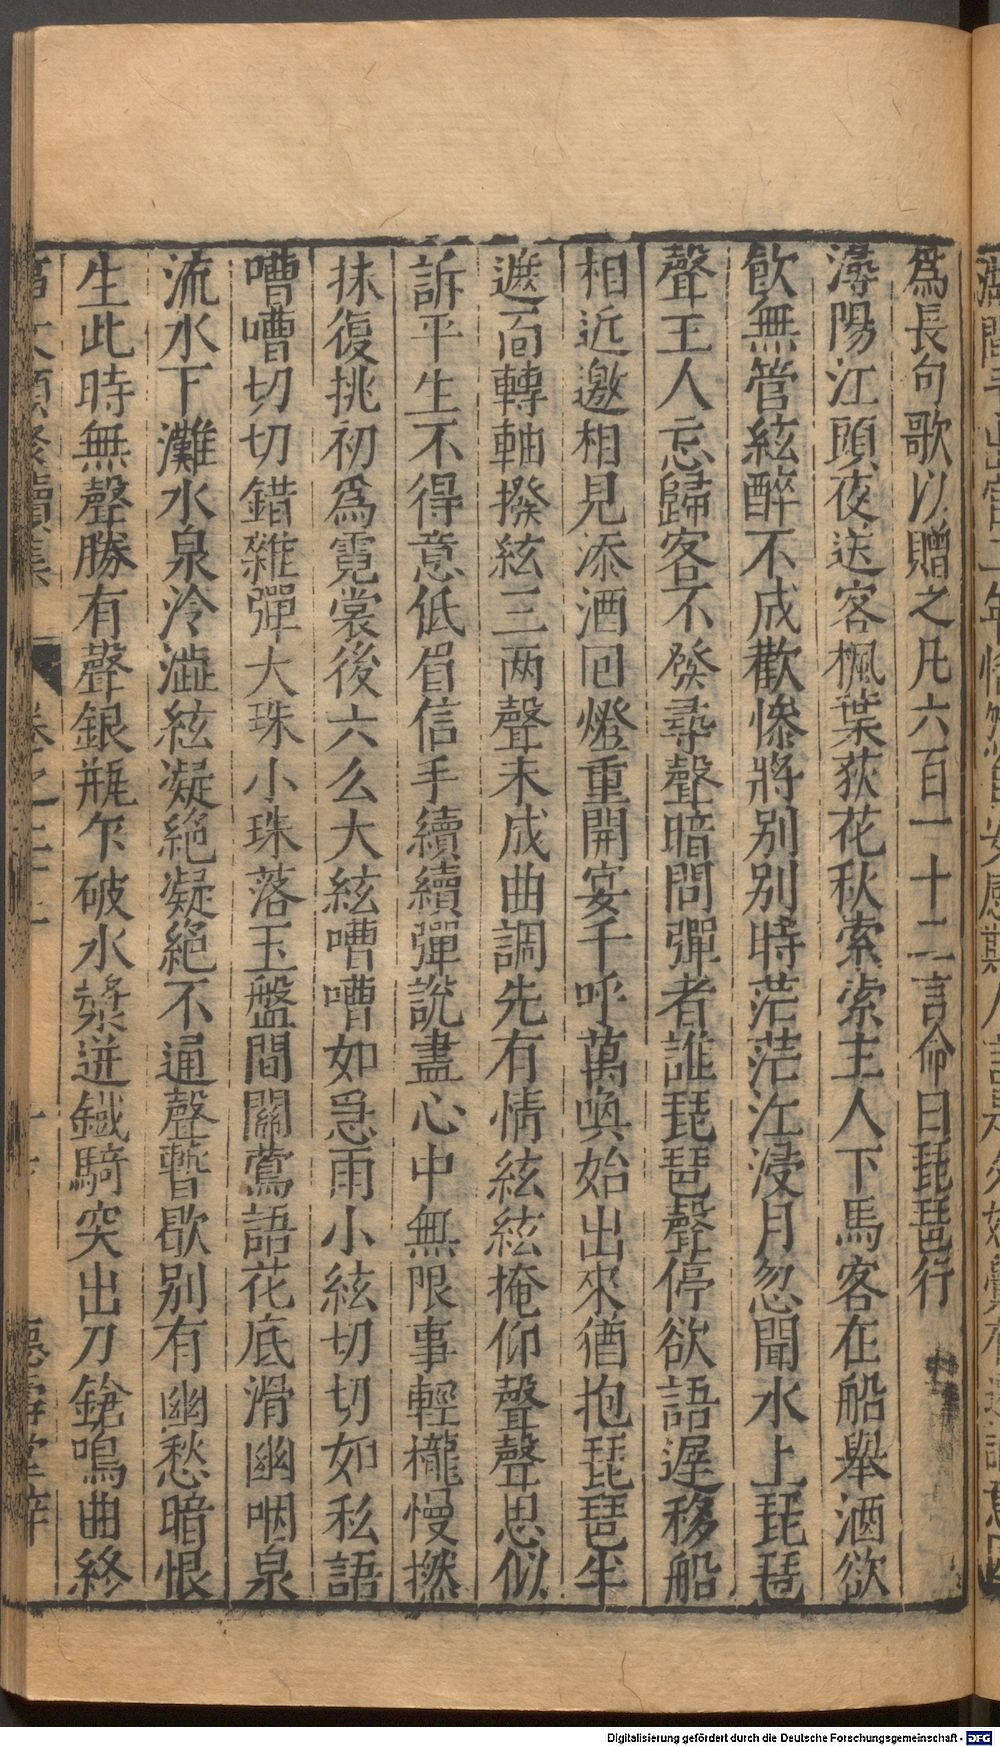 爲長句歌以贈之凡六百一十二言命曰琵琶行
潯陽江頭夜送客楓葉荻花秋索索主人下馬客在船舉酒欲
飲無管絃醉不成歡慘將别别時茫茫江浸月忽聞水上琵琶
聲主人忘歸客不發尋聲暗問彈者誰琵琶聲停欲語遲移船
相近邀相見添酒回燈重開宴千呼萬喚始出來猶抱琵琶半
遮面轉軸撥絃三两聲未成曲調先有情絃絃掩仰聲聲思似
訴平生不得意低眉信手續續彈說盡心中無限事輕櫳慢撚
抹復挑初爲霓裳後六么大絃嘈嘈如急雨小絃切切如私語
嘈嘈切切錯雜彈大珠小珠落玉盤間關鶯語花底滑幽咽泉
流水下灘水泉冷澁絃凝絕凝絕不通聲暫歇别有幽愁暗恨
生此時無聲勝有聲銀瓶乍破水漿迸鐵騎突出刀鎗鳴曲終
卷之二十
Digitalisierung gefördert durch die Deutsche Forschungsgemeinschaft - DFG